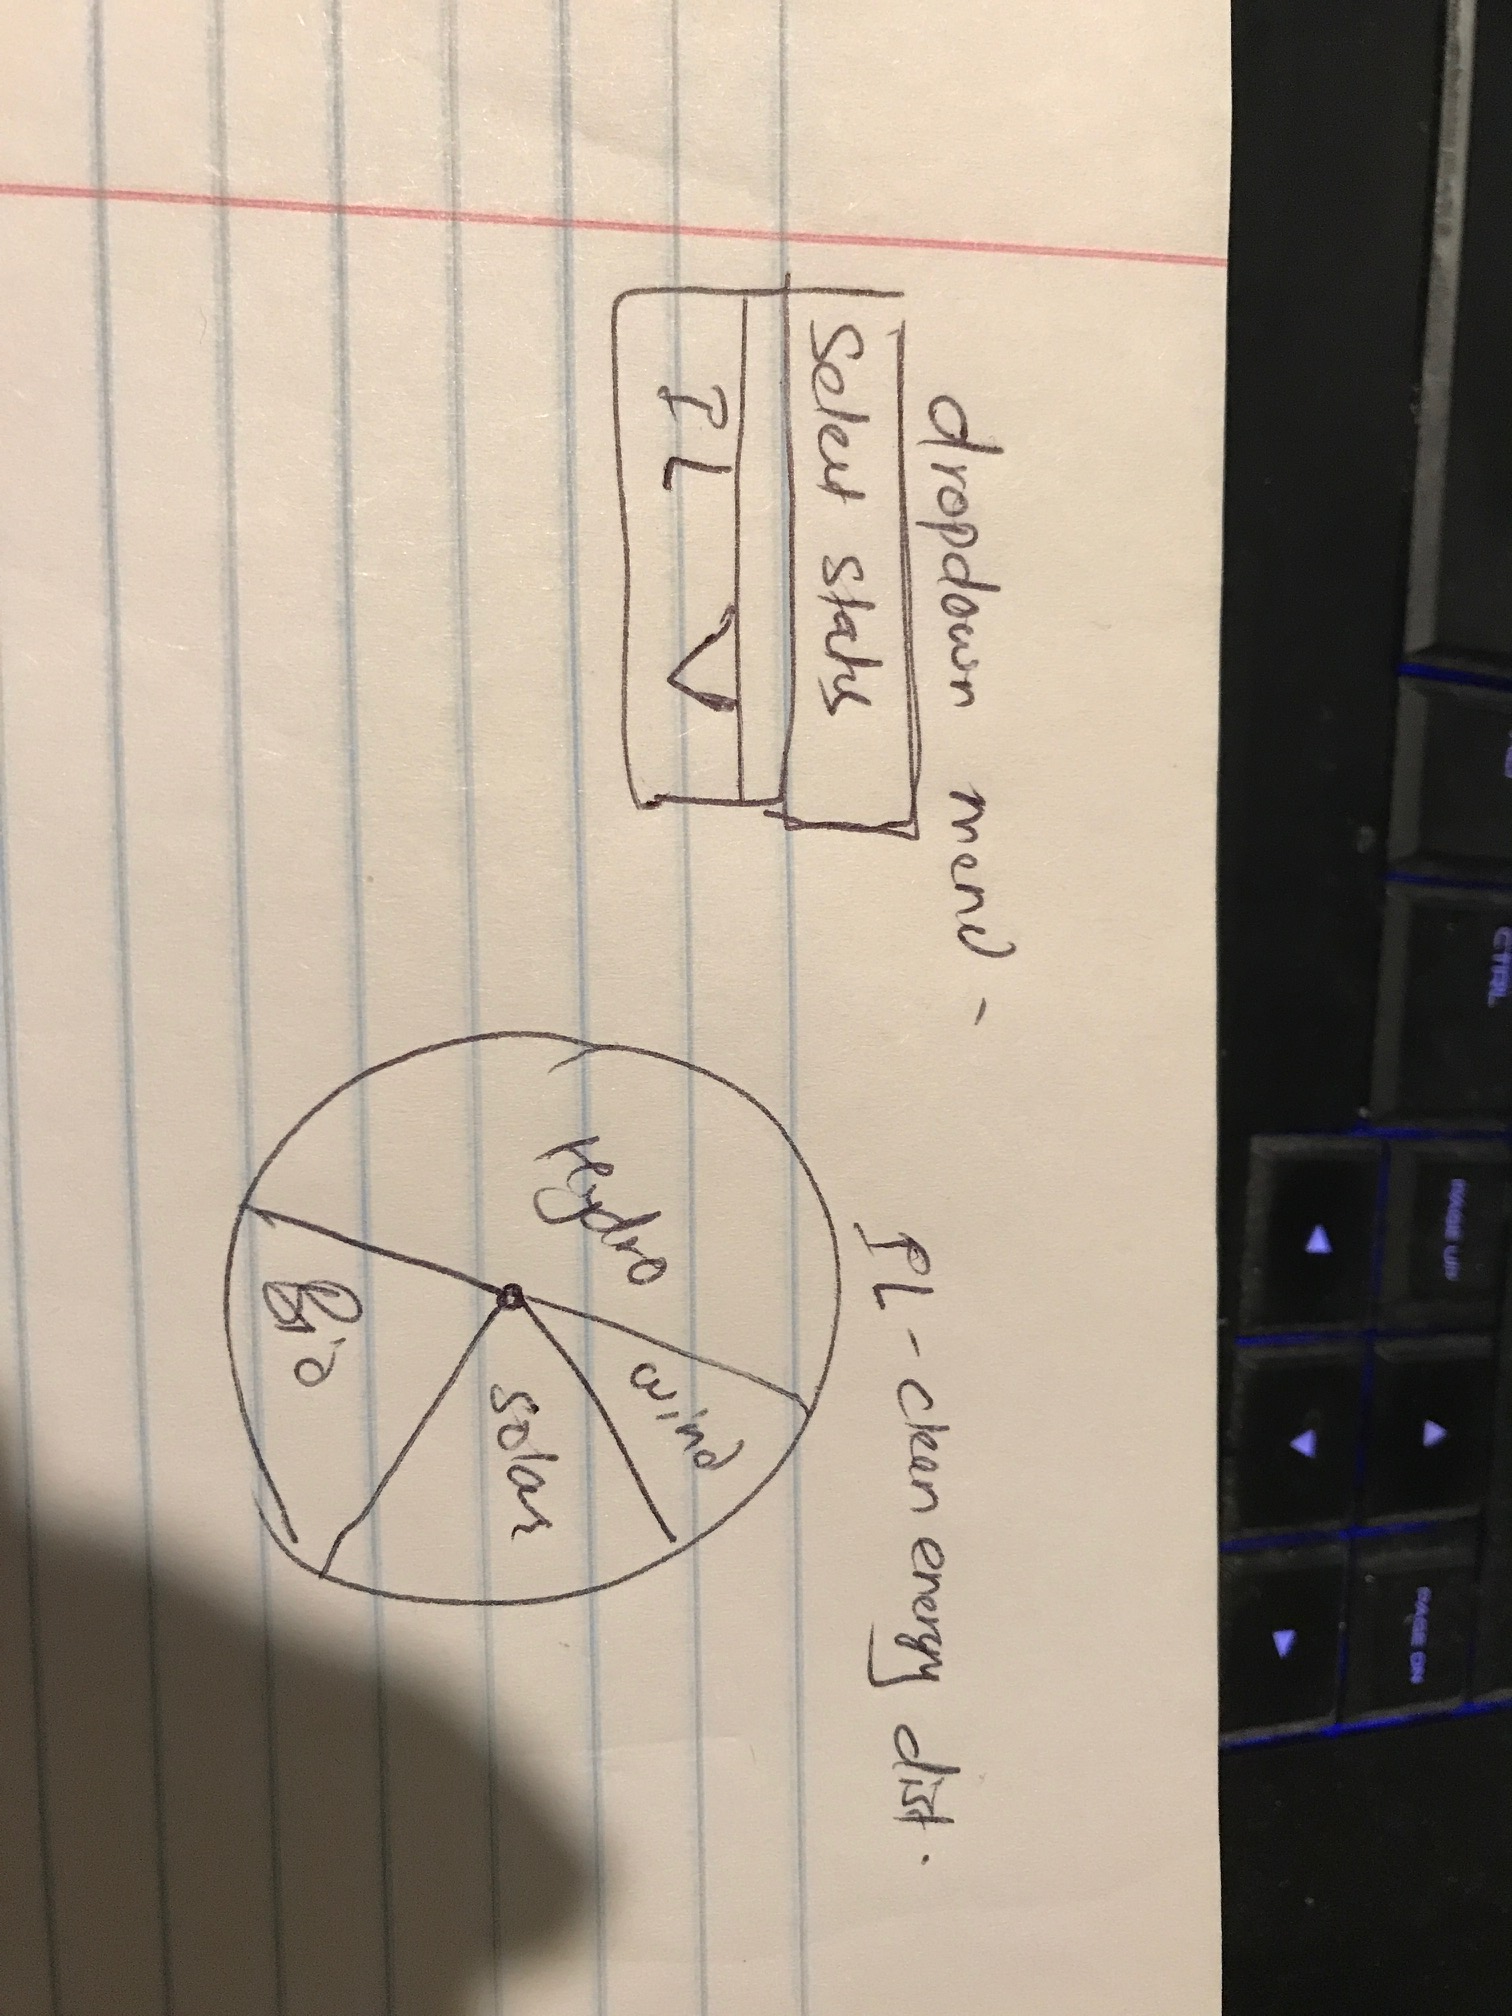 dropdown menu -
Select states
IL
IL - clean energy dist.
Hydro
wind
solar
Bio
CTRL
PAGE UP
PAGE DN